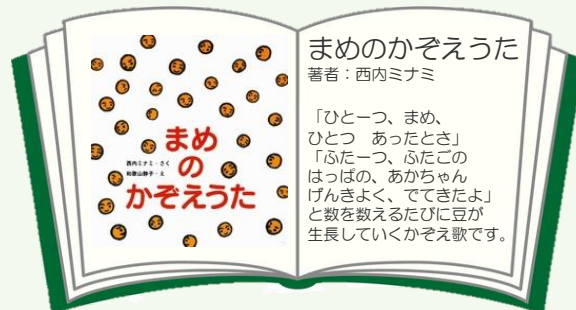 まめ
の
かぞえうた
西内ミナミ・さく
和歌山静子・え
まめのかぞえうた
著者：西内ミナミ
「ひとーつ、まめ、
ひとつ　あったとさ」
「ふたーつ、ふたごの
はっぱの、あかちゃん
げんきよく、でてきたよ」
と数を数えるたびに豆が
生長していくかぞえ歌です。